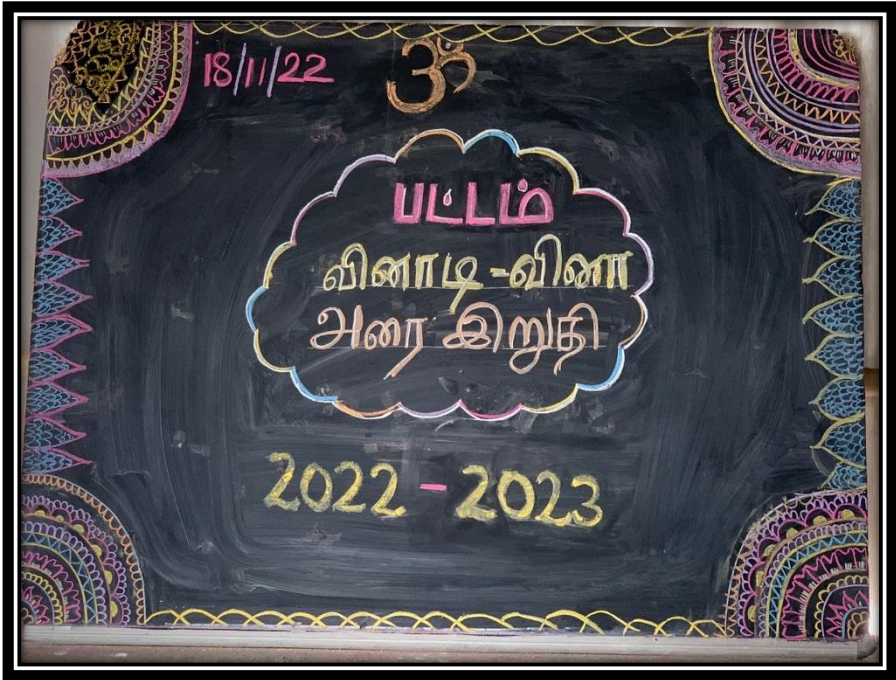 18/11/22
ॐ
பட்டம்
வினாடி-வினா
அரை இறுதி
2022-2023